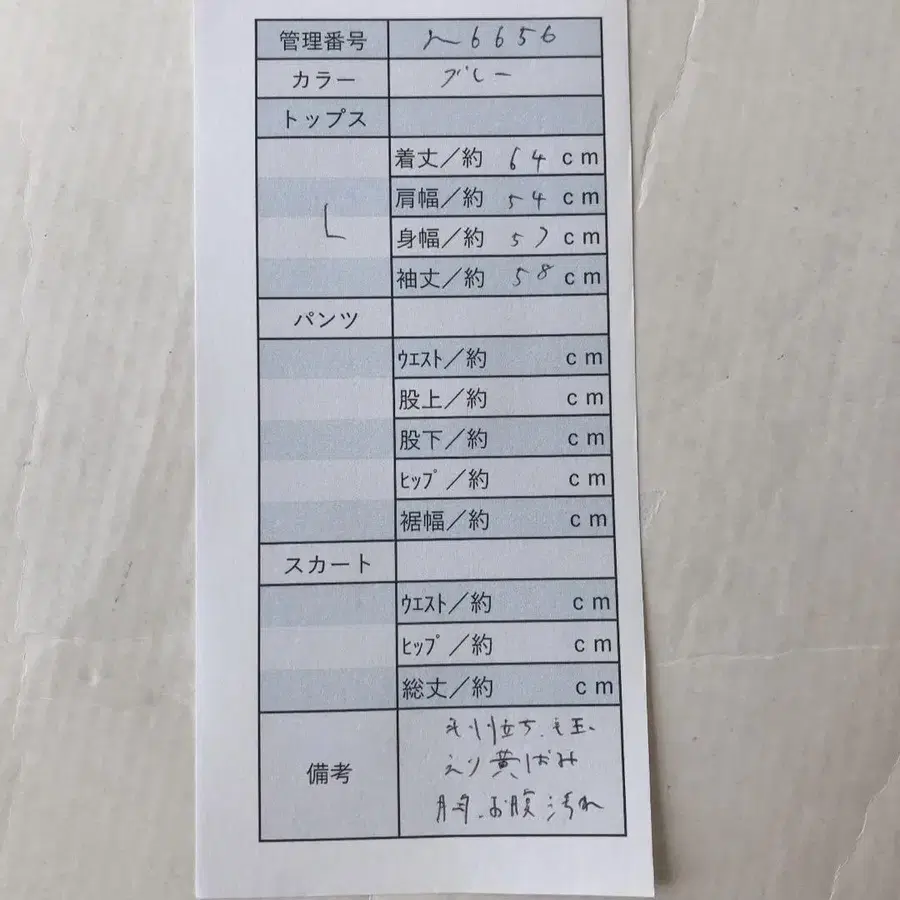 管理番号 n6656
カラー グレー
トップス
着丈／約 64 cm
肩幅／約 54 cm
L
身幅／約 57 cm
袖丈／約 58 cm
パンツ
ｳｴｽﾄ／約 cm
股上／約 cm
股下／約 cm
ﾋｯﾌﾟ／約 cm
裾幅／約 cm
スカート
ｳｴｽﾄ／約 cm
ﾋｯﾌﾟ／約 cm
総丈／約 cm
備考
毛羽立ち、毛玉、
えり黄ばみ
胸、お腹汚れ